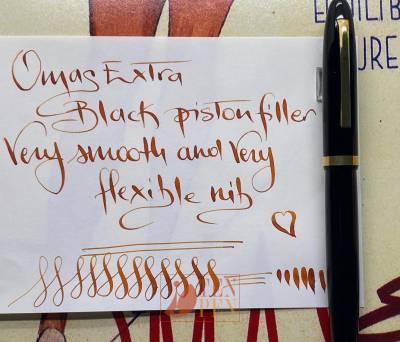 EQUILIB
URE
Omas Extra
Black piston filler
Very smooth and very
flexible nib
FOX
PEN